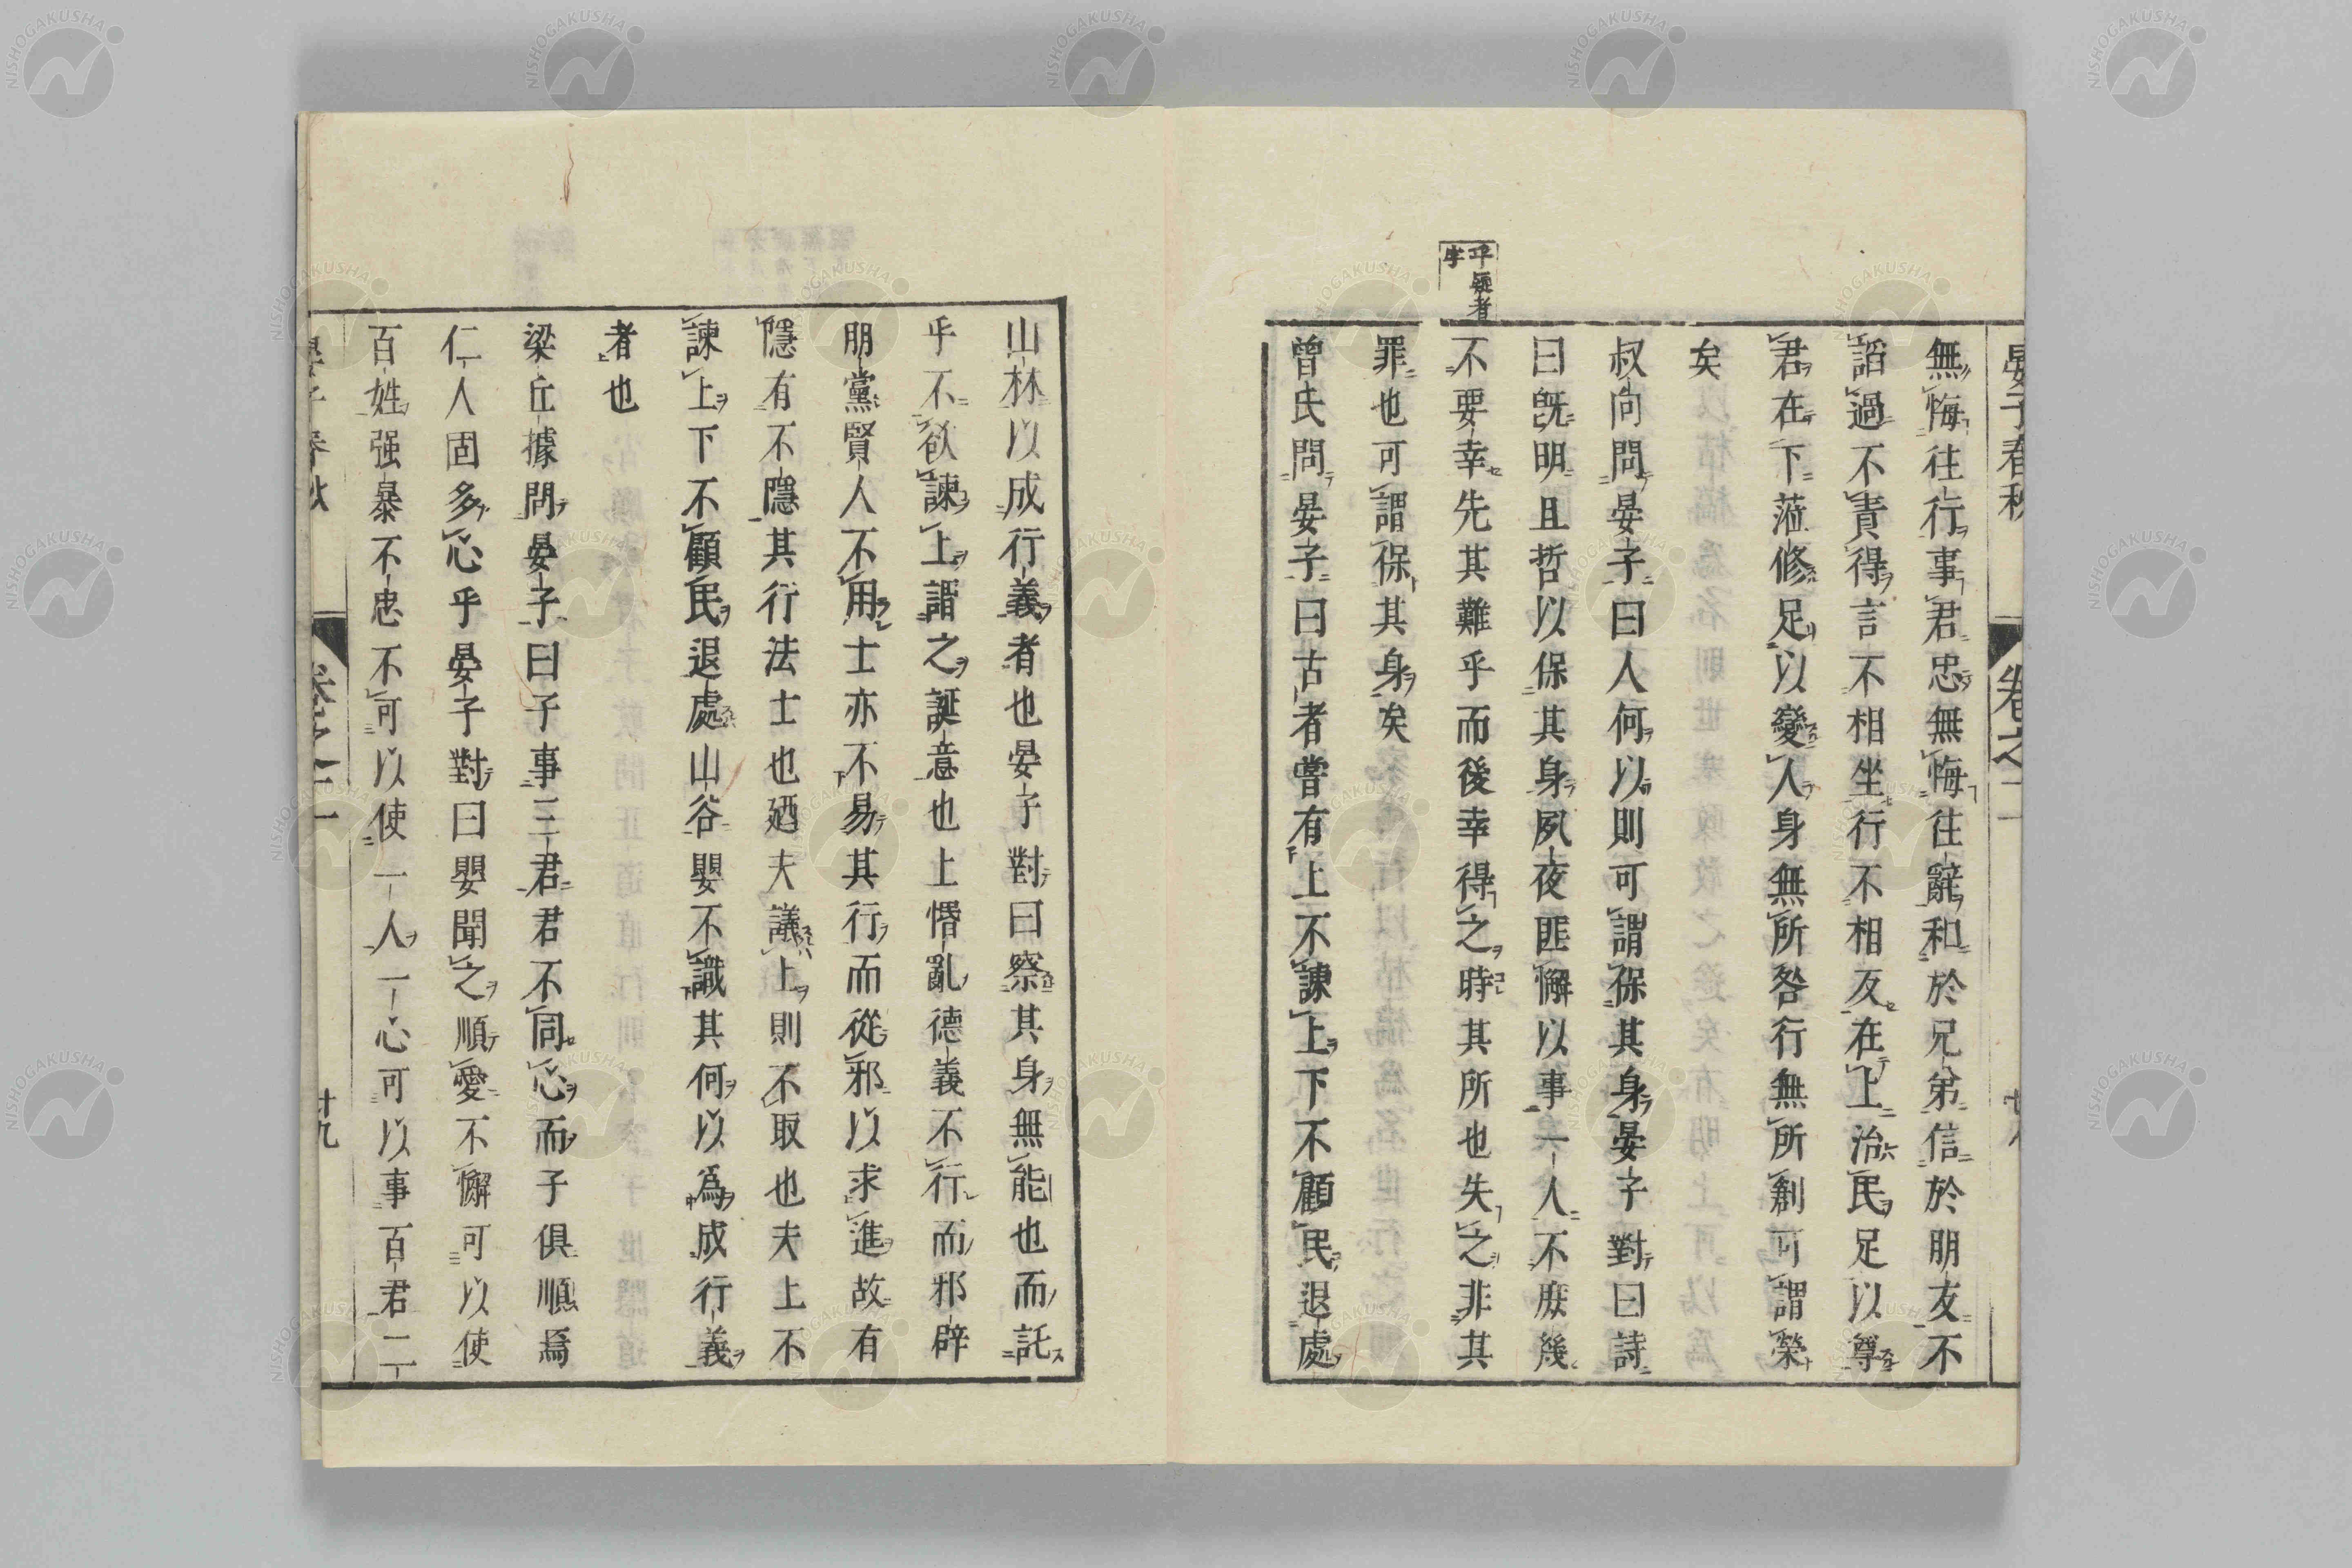 晏子春秋 卷之二
無悔往行事君忠無悔往辭和於兄弟信於朋友不
謟過不責得言不相坐行不相反在上治民足以尊
君在下蒞修足以變人身無所咎行無所創可謂榮
矣
叔向問晏子曰人何以則可謂保其身晏子對曰詩
曰旣明且哲以保其身夙夜匪懈以事一人不庶幾
不要幸先其難乎而後幸得之時其所也失之非其
罪也可謂保其身矣
曾氏問晏子曰古者嘗有上不諫上下不顧民退處
乎疑者
字
山林以成行義者也晏子對曰察其身無能也而託
乎不欲諫上謂之誕意也上惛亂德義不行而邪辟
朋黨賢人不用士亦不易其行而從邪以求進故有
隱有不隱其行法士也廼夫議上則不取也夫上不
諫上下不顧民退處山谷嬰不識其何以為成行義
者也
梁丘據問晏子曰子事三君君不同心而子俱順焉
仁人固多心乎晏子對曰嬰聞之順愛不懈可以使
百姓强暴不忠不可以使一人一心可以事百君二
晏子春秋 卷之二 廿九
NISHOGAKUSHA